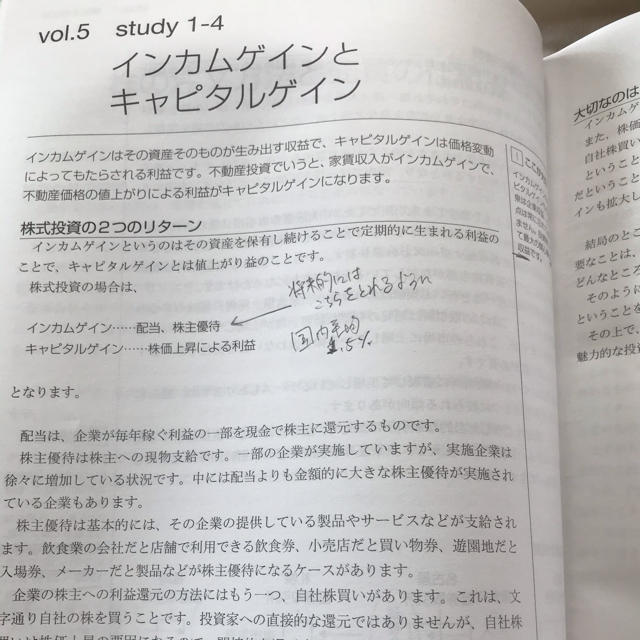 vol.5 study 1-4
インカムゲインと
キャピタルゲイン
インカムゲインはその資産そのものが生み出す収益で、キャピタルゲインは価格変動
によってもたらされる利益です。不動産投資でいうと、家賃収入がインカムゲインで、
不動産価格の値上がりによる利益がキャピタルゲインになります。
株式投資の2つのリターン
インカムゲインというのはその資産を保有し続けることで定期的に生まれる利益の
ことで、キャピタルゲインとは値上がり益のことです。
株式投資の場合は、
将来的には
こちらをとれるように
インカムゲイン……配当、株主優待
キャピタルゲイン……株価上昇による利益
国内平均
1.5%
となります。
配当は、企業が毎年稼ぐ利益の一部を現金で株主に還元するものです。
株主優待は株主への現物支給です。一部の企業が実施していますが、実施企業は
徐々に増加している状況です。中には配当よりも金額的に大きな株主優待が実施され
ている企業もあります。
株主優待は基本的には、その企業の提供している製品やサービスなどが支給され
ます。飲食業の会社だと店舗で利用できる飲食券、小売店だと買い物券、遊園地だと
入場券、メーカーだと製品などが株主優待になるケースがあります。
企業の株主への利益還元の方法にはもう一つ、自社株買いがあります。これは、文
字通り自社の株を買うことです。投資家への直接的な還元ではありませんが、自社株
1
インカムゲイ
収益です。
大切なのは
インカムゲ
また、株価
自社株買い
ということ
だということ
インも拡大し
結局のとこ
要なことは、
どんなところ
そのように
ということを
その上で、
魅力的な投資